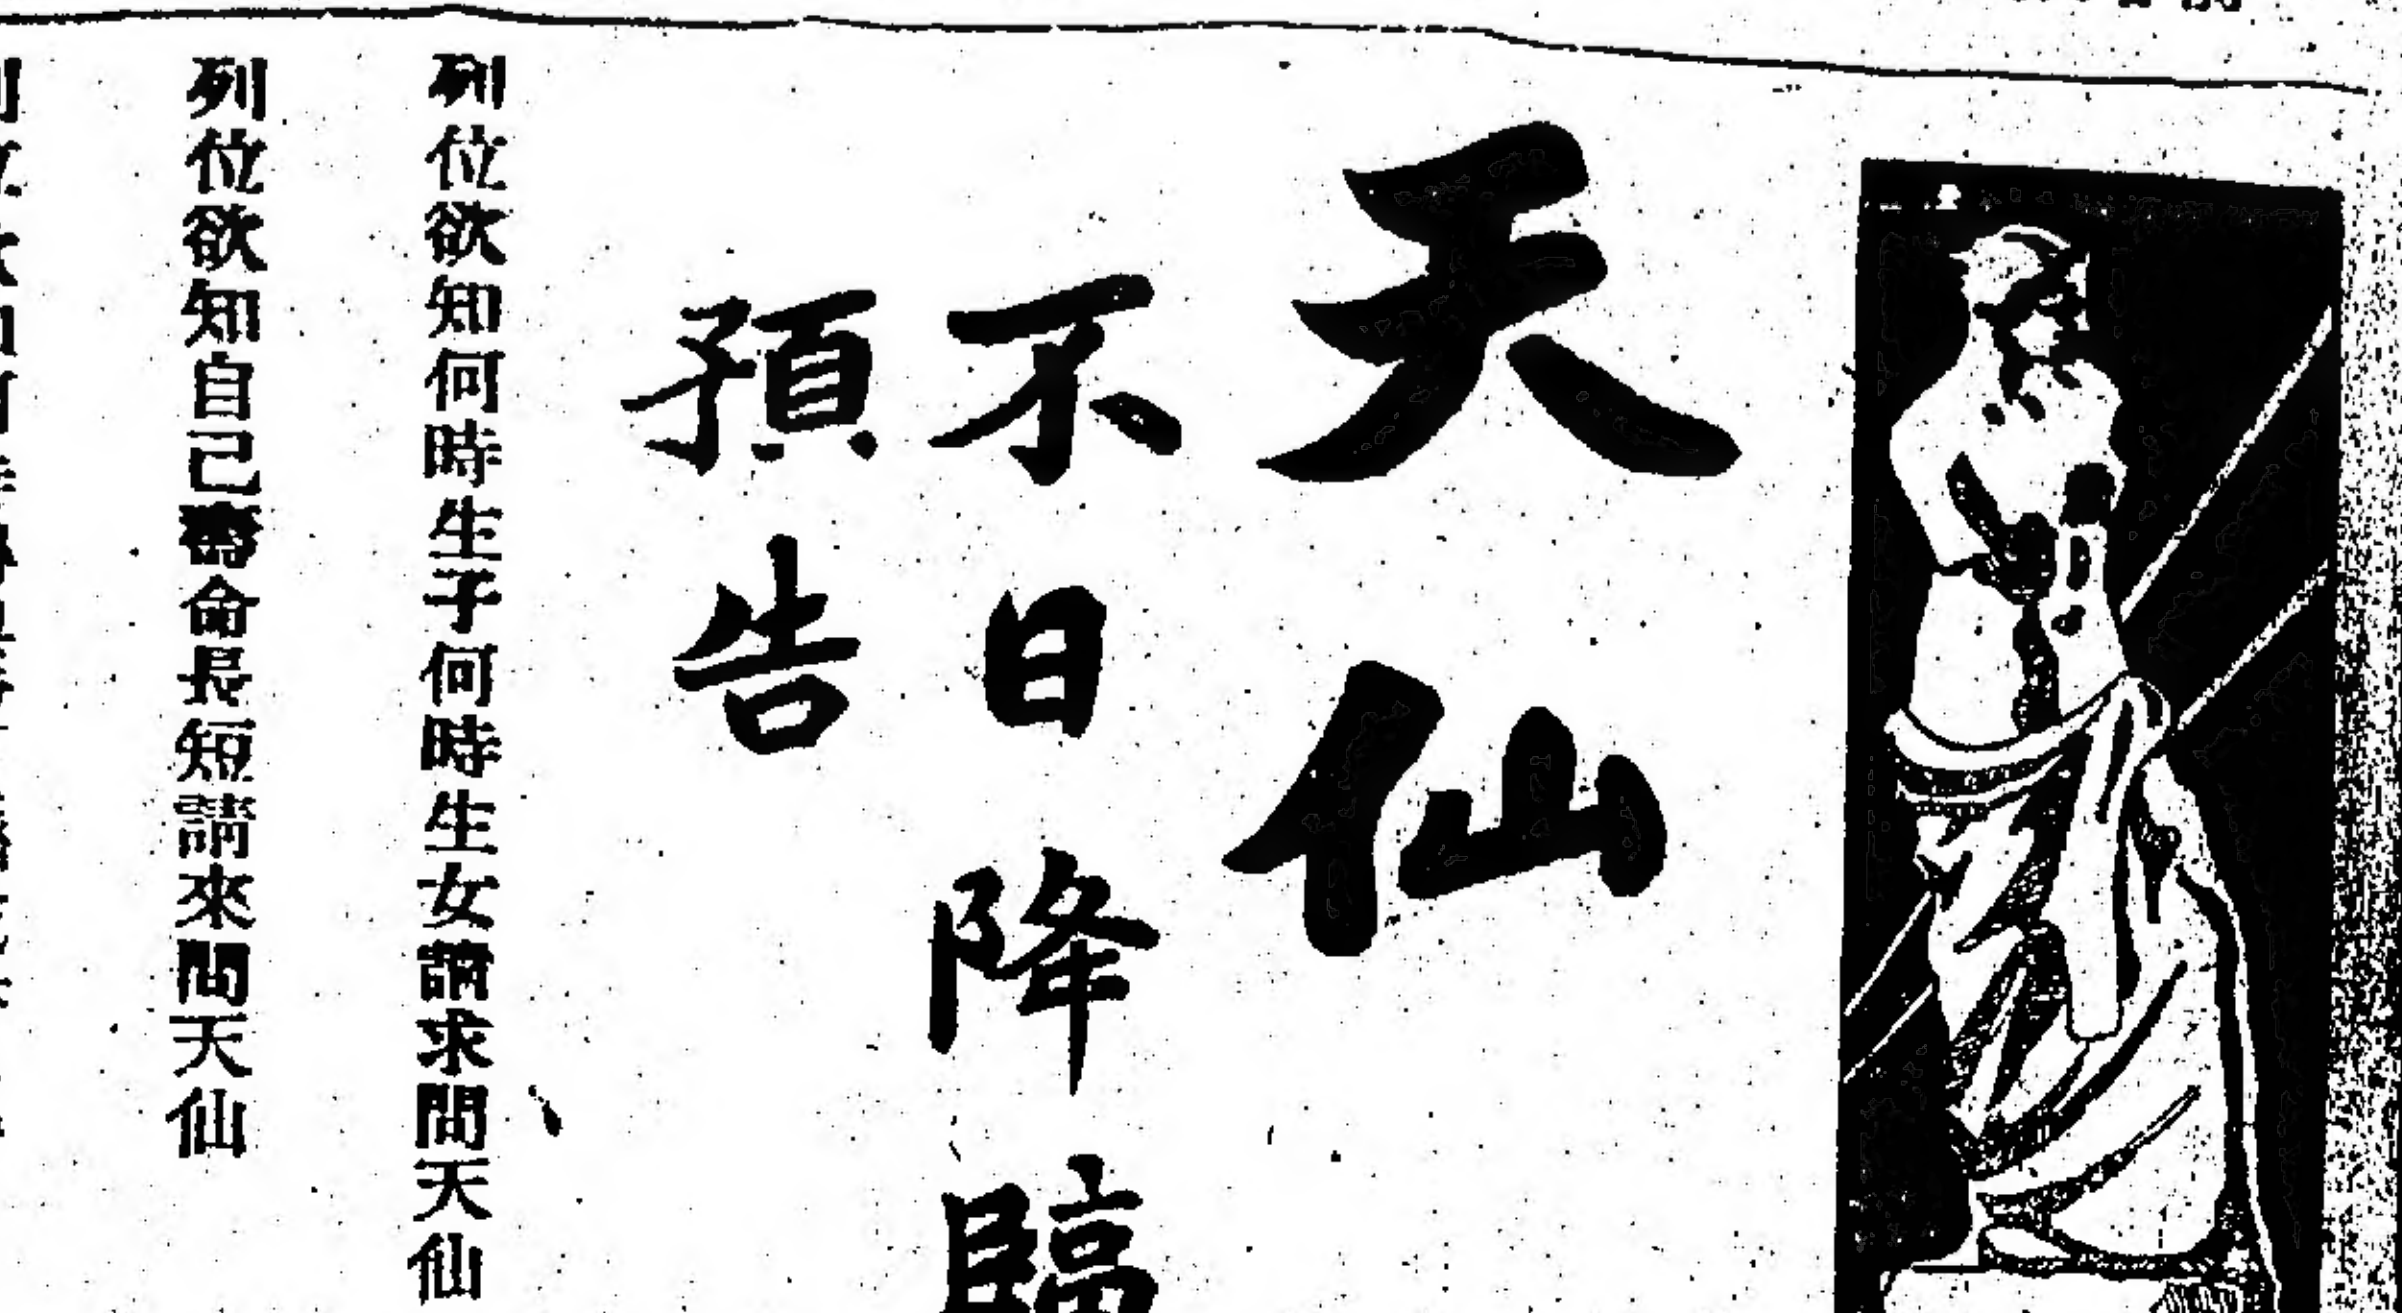 天仙
不日降臨
預告
列位欲知何時生子何時生女請求問天仙
列位欲知自己壽命長短請來問天仙